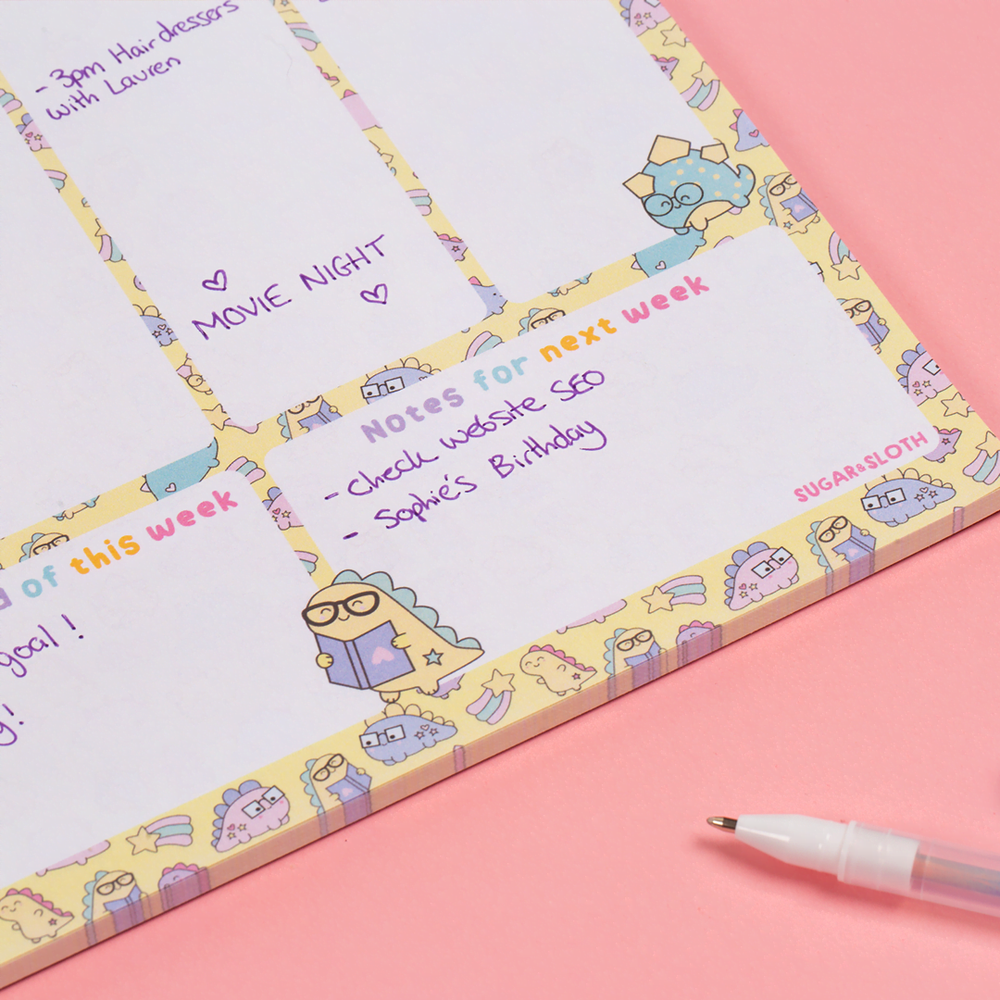 - 3pm Hairdressers
with Lauren
MOVIE NIGHT
Notes for next week
- check website SEO
- Sophie's Birthday
SUGAR&SLOTH
of this week
goal!